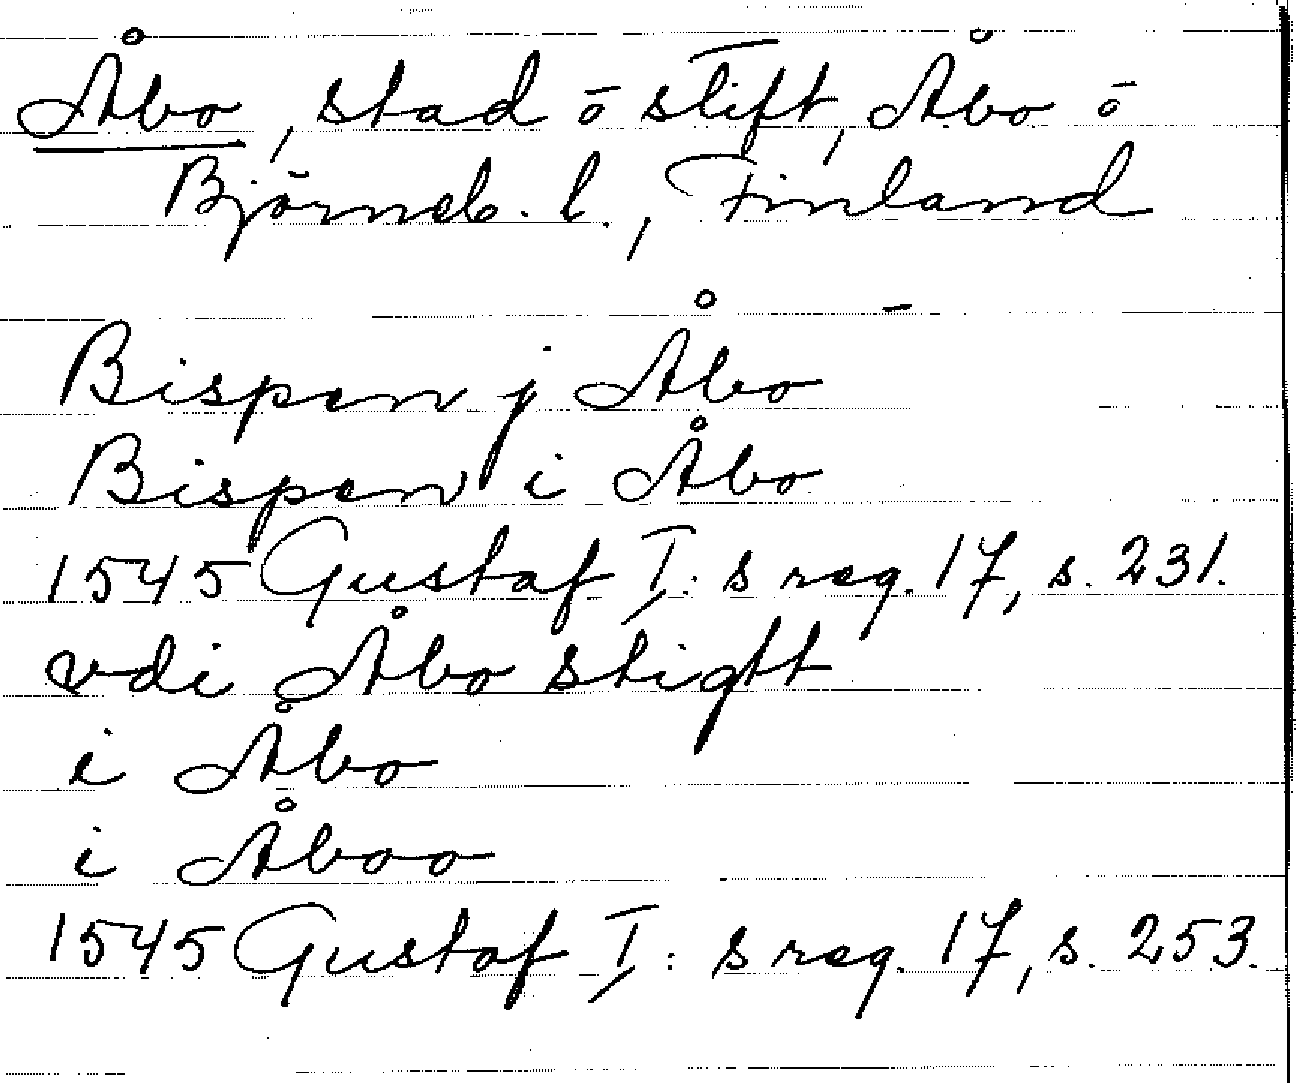 Åbo, stad o stift, Åbo o
Björneb. l., Finland
Bispen j Åbo
Bispen i Åbo
1545 Gustaf I:s reg. 17, s. 231.
vdi Åbo stigtt
i Åbo
i Åboo
1545 Gustaf I:s reg. 17, s. 253.